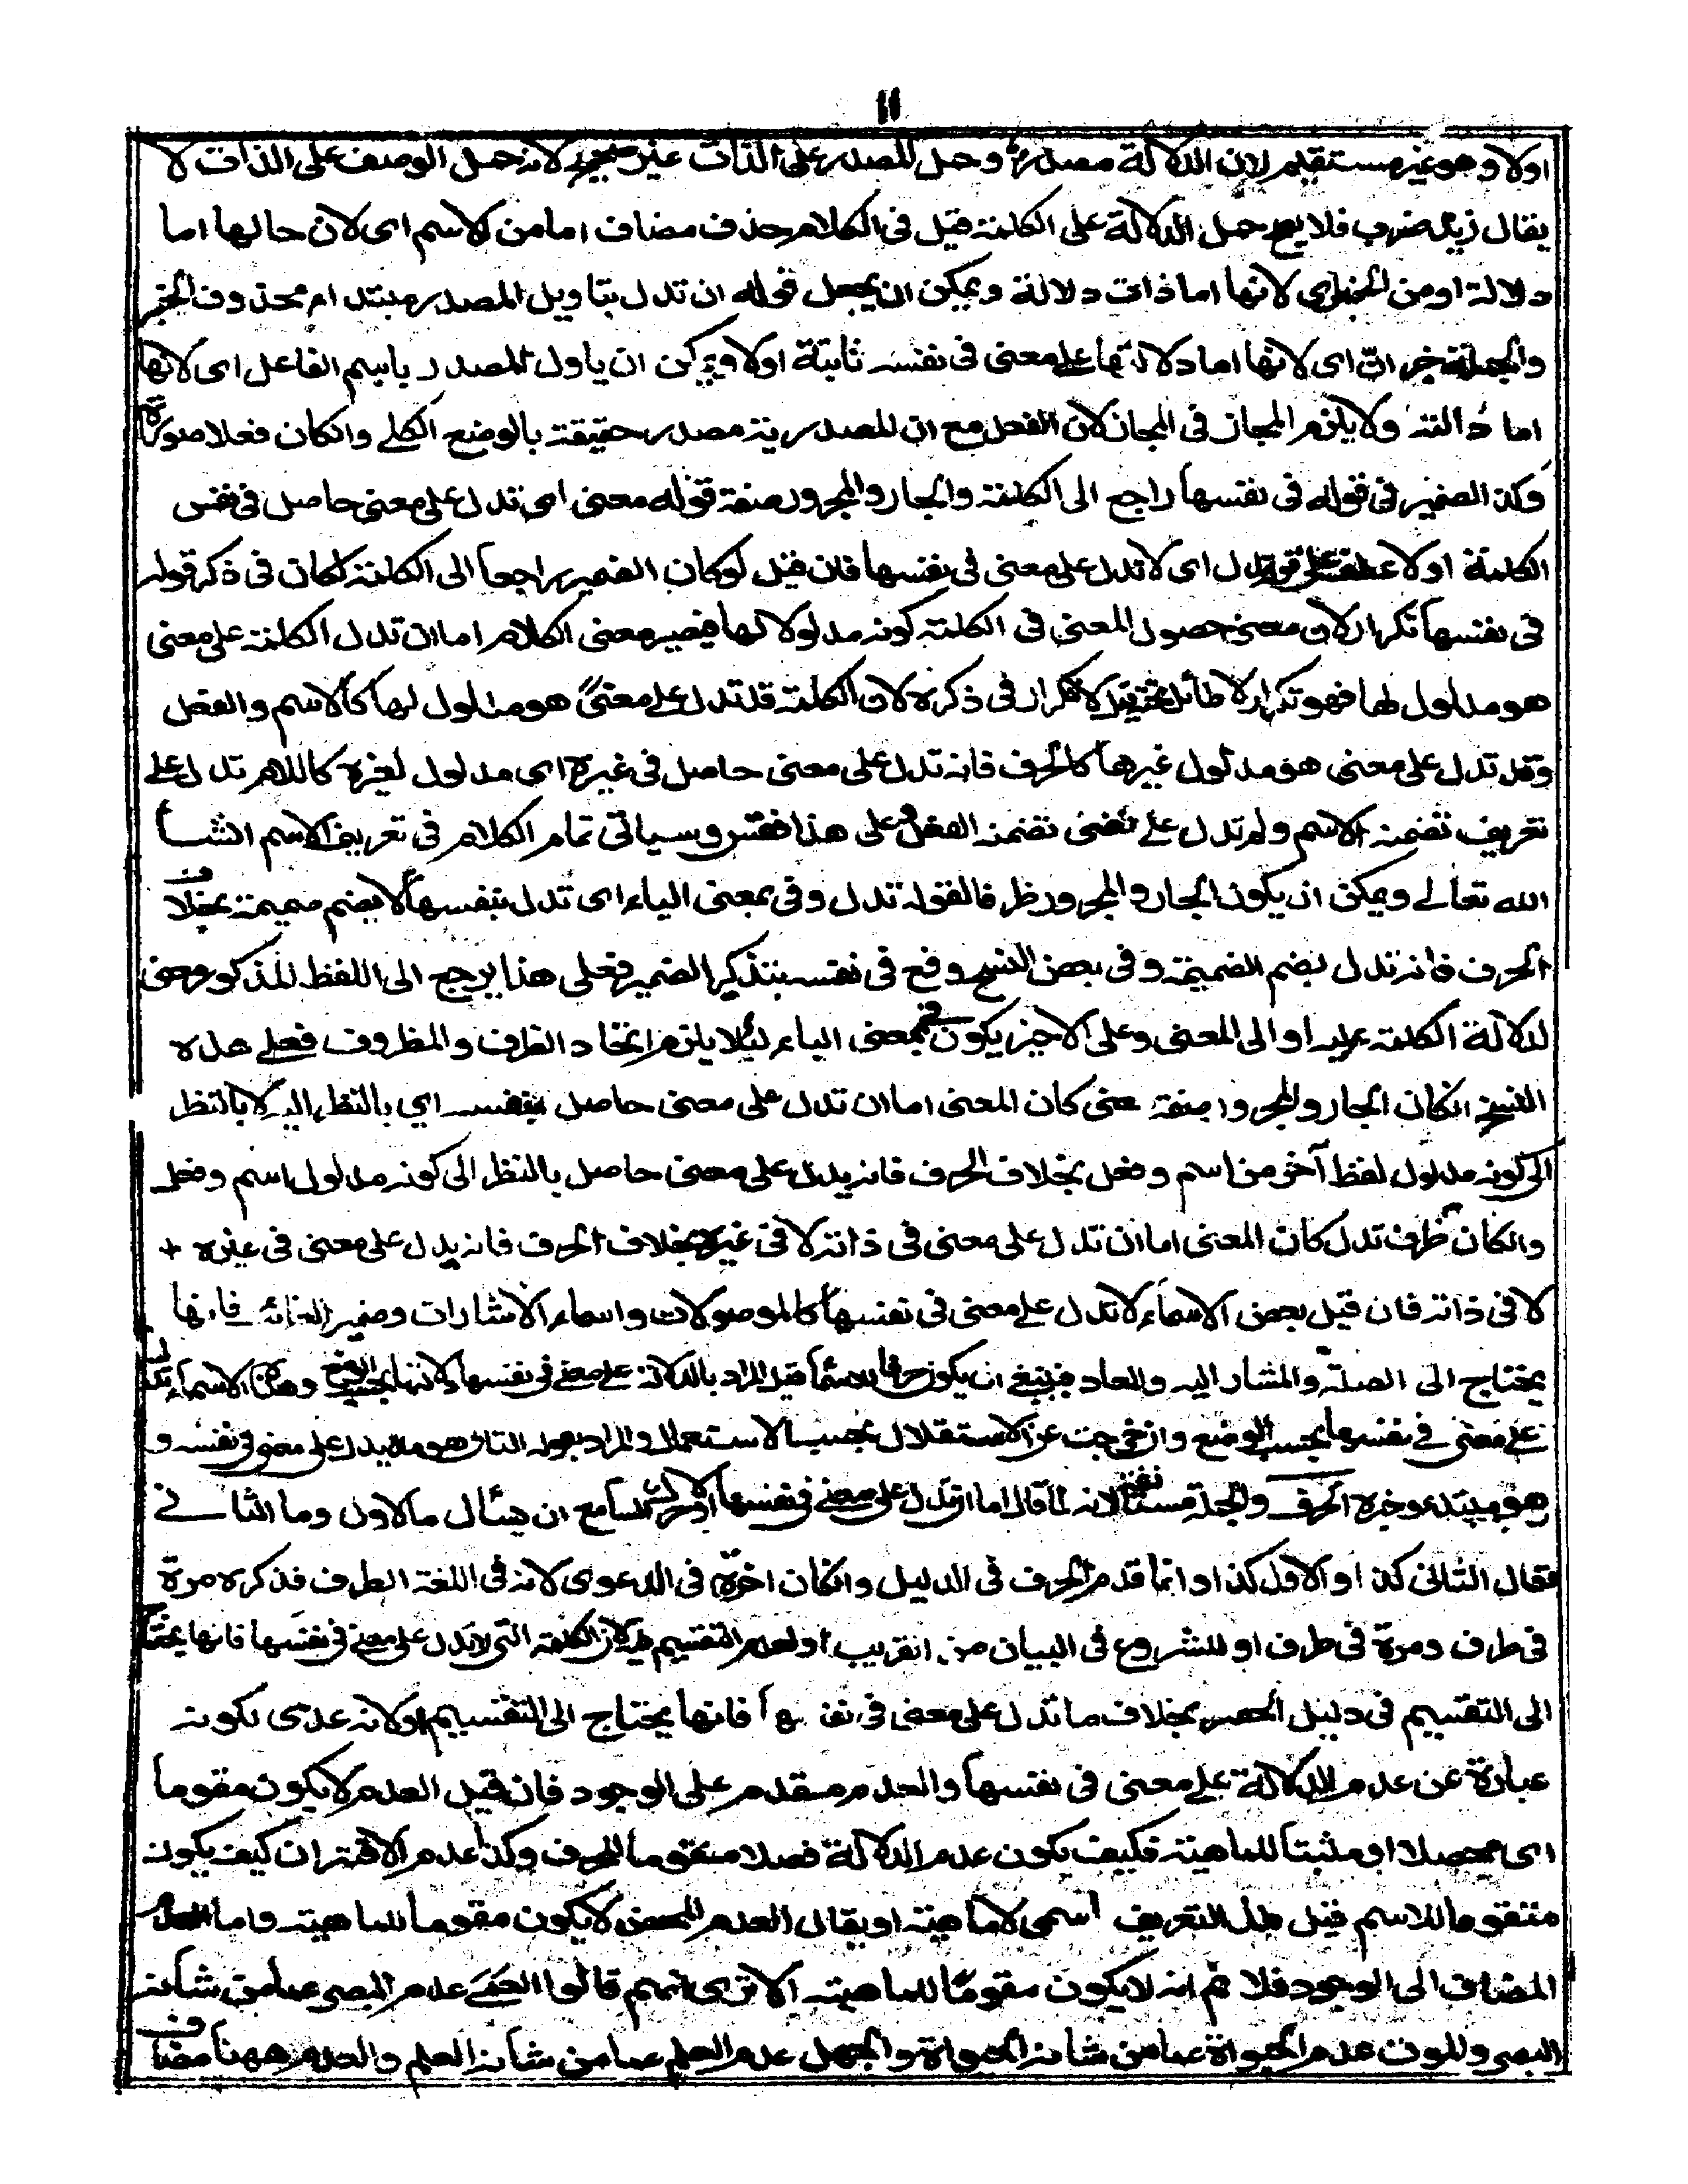 ١١
اولا وهو غير مستقيم لان الدلالة مصدر وحمل المصدر على الذات غير صحيح لانه حمل الوصف على الذات لا
يقال زيد ضرب فلا يصح حمل الدلالة على الكلمة قيل فى الكلام حذف مضاف اما من الاسم اى لان حالها اما
دلالة او من الخبر اى لانها اما ذات دلالة ويمكن ان يجعل قوله ان تدل بتاويل المصدر مبتداء محذوف الخبر
والجملة خبر انّ اى لانها اما دلالتها على معنى فى نفسه ثابتة اولا ويمكن ان ياول المصدر باسم الفاعل اى لانها
اما دالته ولا يلزم المجاز فى المجاز لان الفعل مع ان المصدرية مصدر حقيقة بالوضع الكلے وانكان فعلا صورة
وكذا الضمير فى قوله فى نفسها راجع الى الكلمة والجار والمجرور صفة قوله معنى اى تدل على معنى حاصل فى نفس
الكلمة اولا عطف على قوله تدل اى لا تدل على معنى فى نفسها فان قيل لو كان الضمير راجعا الى الكلمة لكان فى ذكر قوله
فى نفسها تكرار لان معنى حصول المعنى فى الكلمة كونه مدلولا لها فيصير معنى الكلام اما ان تدل الكلمة على معنى
هو مدلول لها فهو تكرار لا طائل تحته قيل لا تكرار فى ذكره لان الكلمة قد تدل على معنىً هو مدلول لها كالاسم والفعل
وقد تدل على معنى هو مدلول غيرها كالحرف فانه تدل على معنى حاصل فى غيره اى مدلول لغيره كاللام تدل على
تعريف تضمنه الاسم ولم تدل على معنى تضمنه الفعل وعلى هذا فقس وسياتى تمام الكلام فى تعريف الاسم انشا
الله تعالے ويمكن ان يكون الجار والمجرور ظرفا لقوله تدل وفى بمعنى الباء اى تدل بنفسها لا بضم ضميمة بخلاف
الحرف فانه تدل بضم الضميمة وفى بعض النسخ وقع فى نفسه بتذكير الضمير فعلى هذا يرجع الى اللفظ المذكور ومعنى
لدلالة الكلمة عليه او الى المعنى وعلى الاخير يكون فى بمعنى الباء لئلا يلزم اتحاد الظرف والمظروف فعلے هذه
النسخ انكان الجار والمجرور صفة معنى كان المعنى اما ان تدل على معنى حاصل بنفسه اي بالنظر اليه لا بالنظر
الى كونه مدلول لفظ آخر من اسم وفعل بخلاف الحرف فانه يدل على معنى حاصل بالنظر الى كونه مدلول اسم وفعل
وانكان ظرف تدل كان المعنى اما ان تدل على معنى فى ذاته لا فى غيره بخلاف الحرف فانه يدل على معنى فى غيره +
لا فى ذاته فان قيل بعض الاسماء لا تدل على معنى فى نفسها كالموصولات واسماء الاشارات وضمير الغائب فانها
يحتاج الى الصلة والمشار اليه والمعاد فينبغى ان يكون حرفا لا اسما قيل المراد بالدلالة على معنى فى نفسها دلالتها بحسب الوضع وهذه الاسماء تدل
على معنى فى نفسها بحسب الوضع وان خرجت عن الاستقلال بحسب الاستعمال والمراد بقوله الثانى هو ما لا يدل على معنى فى نفسه و
هو مبتدء وخبره الحرف والجملة مستأنفة لانه لما قال اما ان تدل على معنى فى نفسها اولا حرك السامع ان يسأل ما الاول وما الثانے
فقال الثانى كذا والاول كذا وانما قدم الحرف فى الدليل وانكان اخره فى الدعوى لانه فى اللغة الطرف فذكره مرة
فى طرف ومرة فى طرف او للشروع فى البيان من القريب او لعدم التقسيم فيه لان الكلمة التى لا تدل على معنى فى نفسها فانها يحتاج
الى التقسيم فى دليل الحصر بخلاف ما تدل على معنى فى نفسها فانها يحتاج الى التقسيم اولانه عدمى لكونه
عبارة عن عدم الدلالة على معنى فى نفسها والعدم مقدم على الوجود فان قيل العدم لا يكون مقوما
اى محصلا او مثبتا للماهية فكيف يكون عدم الدلالة فصلا متقوما للحرف وكذا عدم الاقتران كيف يكون
متقوما للاسم قيل هذا التعريف اسمى لا ماهية او يقال العدم المحض لا يكون مقوما للماهية واما العدم
المضاف الى الوجود فلا نم انه لا يكون مقومًا للماهية الا ترى انهم قالوا العمى عدم البصر عما من شانه
البصر والموت عدم الحيوة عما من شانه الحيوة والجهل عدم العلم عما من شانه العلم والعدم ههنا مضاف